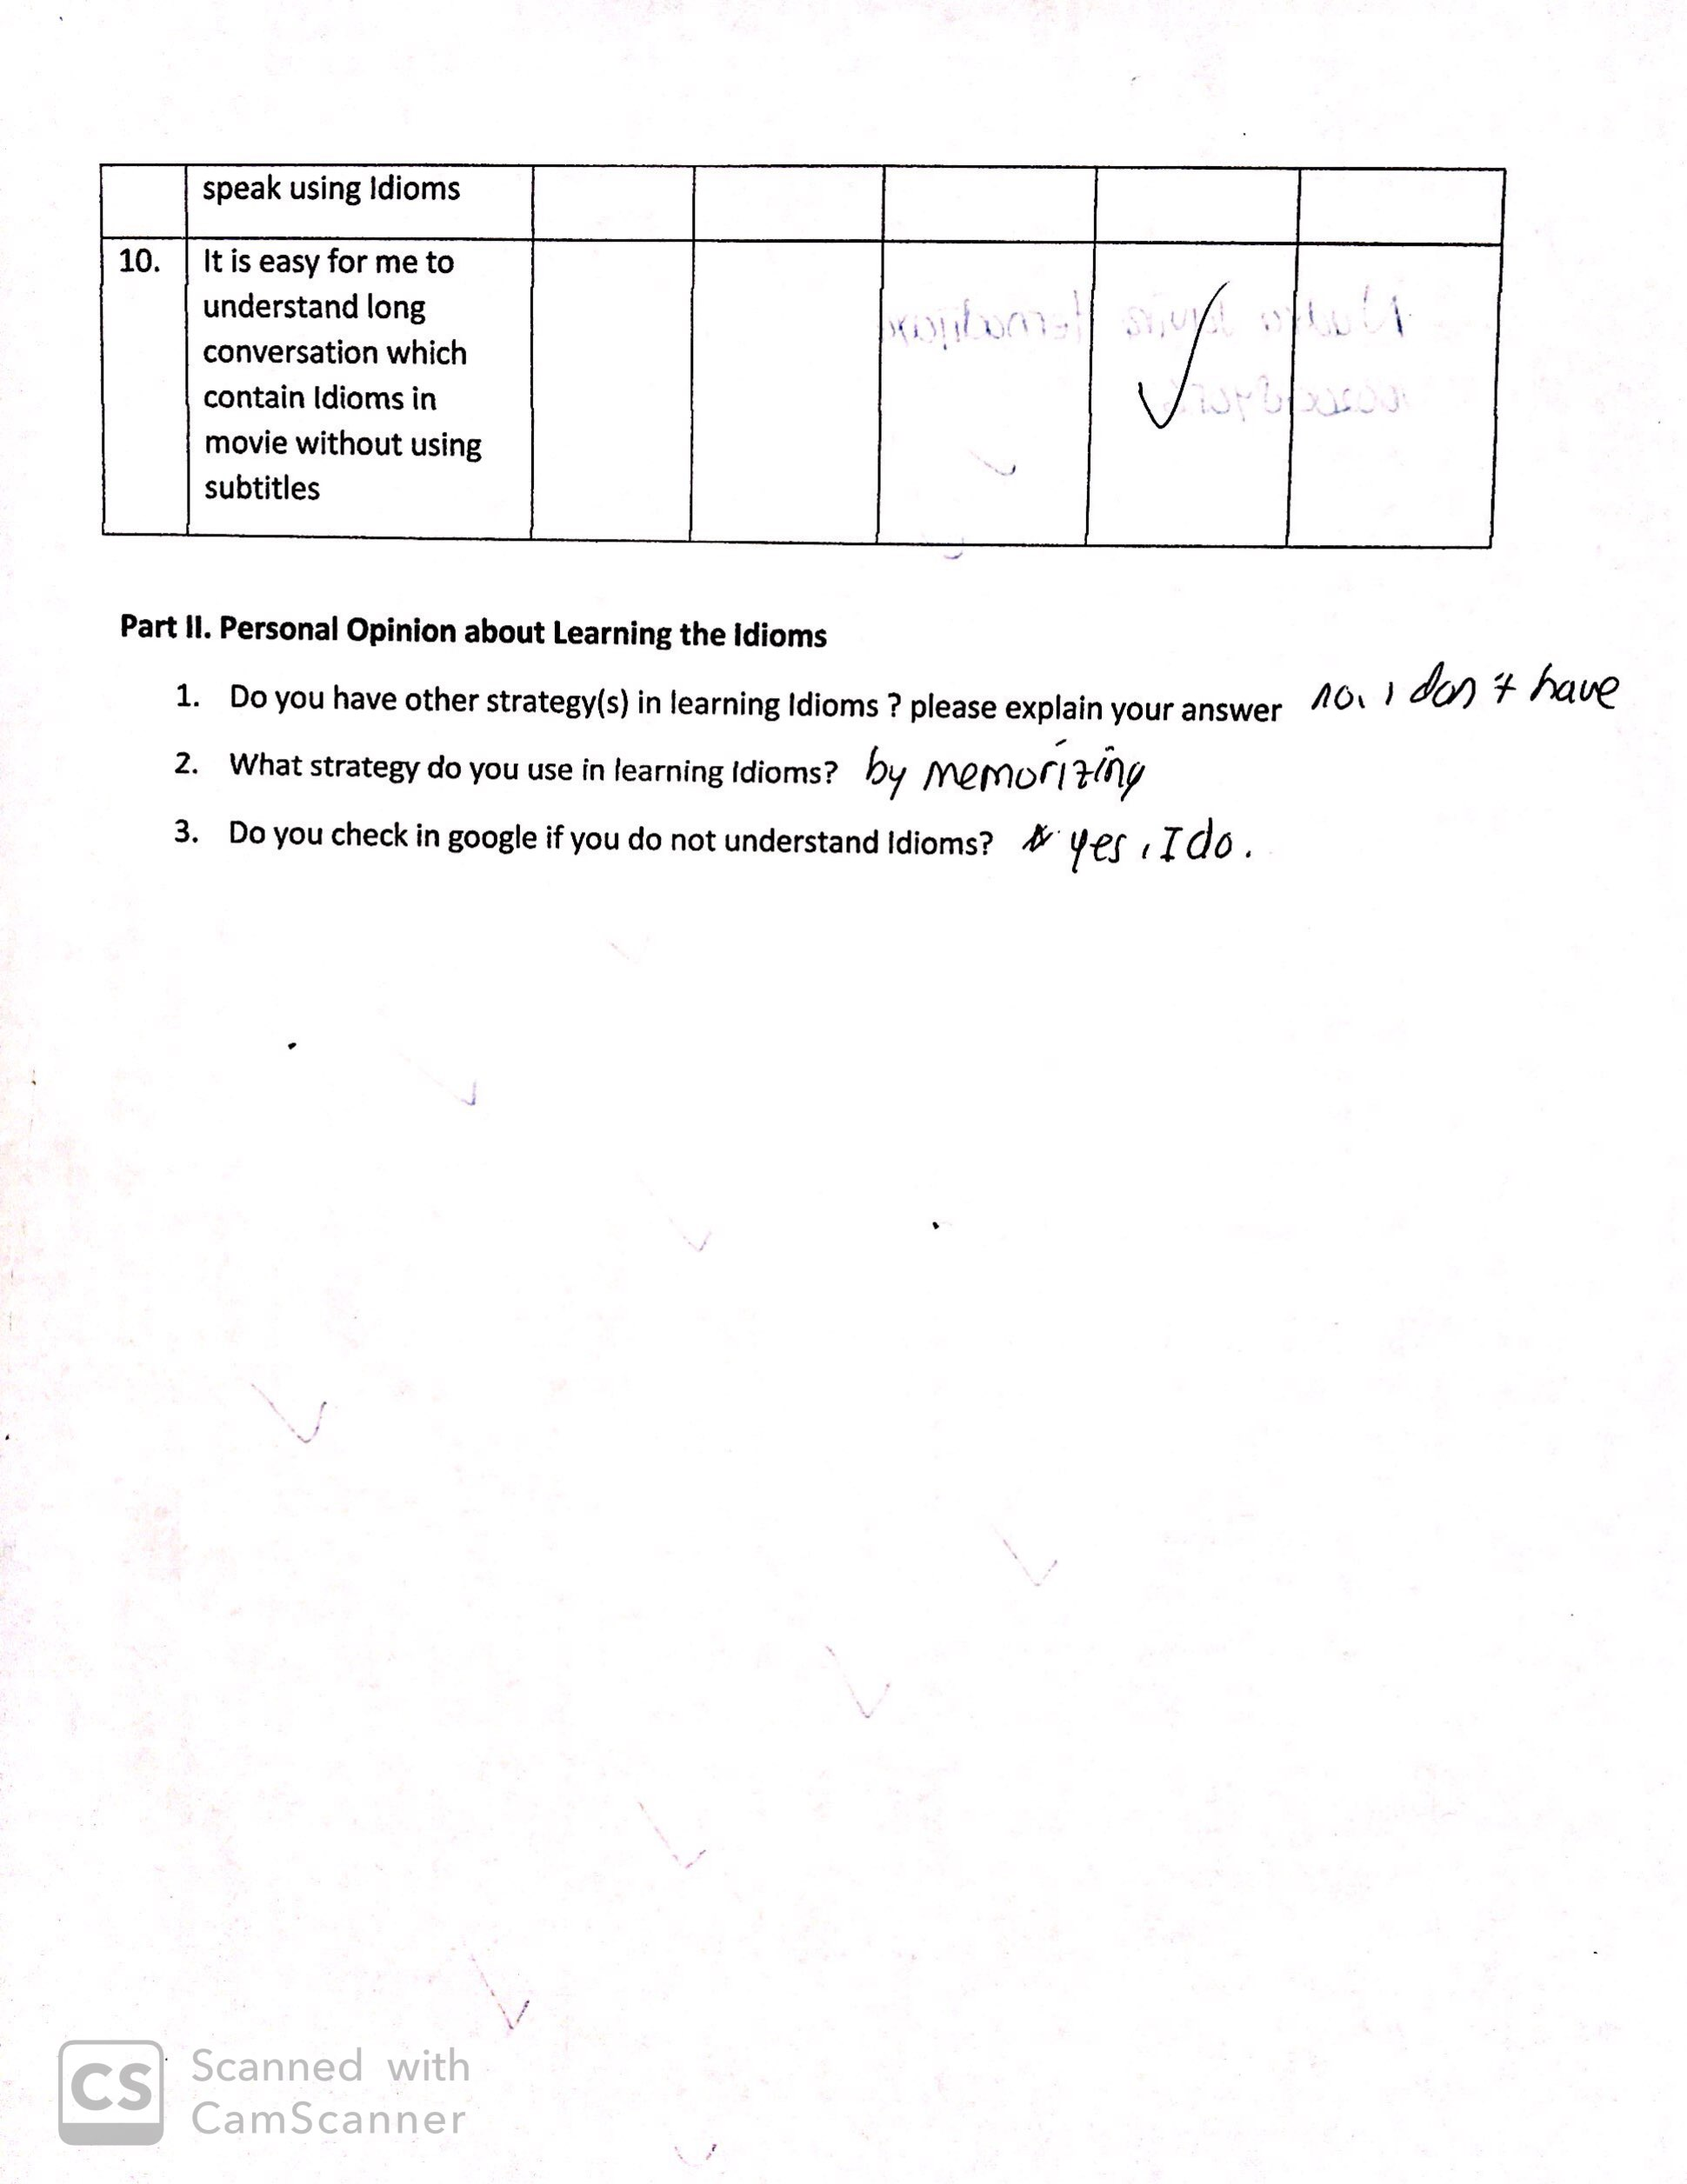 speak using Idioms
10. It is easy for me to
understand long
conversation which
contain Idioms in
movie without using
subtitles
Part II. Personal Opinion about Learning the Idioms
1. Do you have other strategy(s) in learning Idioms ? please explain your answer no, I don't have
2. What strategy do you use in learning Idioms? by memorizing
3. Do you check in google if you do not understand Idioms? yes, I do.
CS Scanned with
CamScanner